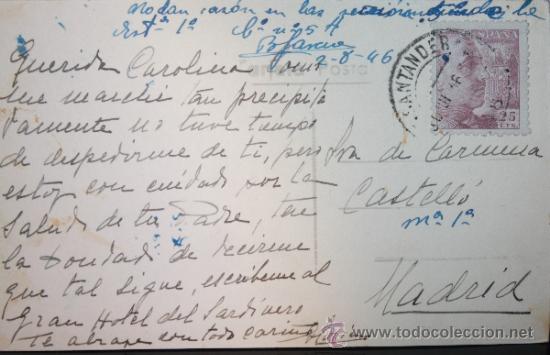 no dan razón en las
Estª 1ª Cº nº 5 A
7-8-46
Tarjeta Postal
ESPAÑA
CORREOS
25
CTS.
SANTANDER
Querida Carolina como
me marche tan precipita
damente no tuve tiempo
de despedirme de ti, pero
estoy con cuidado por la
salud de tu Padre, ten
la bondad de decirme
que tal sigue, escribeme al
Gran Hotel del Sardinero
te abraza con todo cariño
Sra de Carmena
Castelló
mª 1ª
Madrid
todocoleccion
www.todocoleccion.net